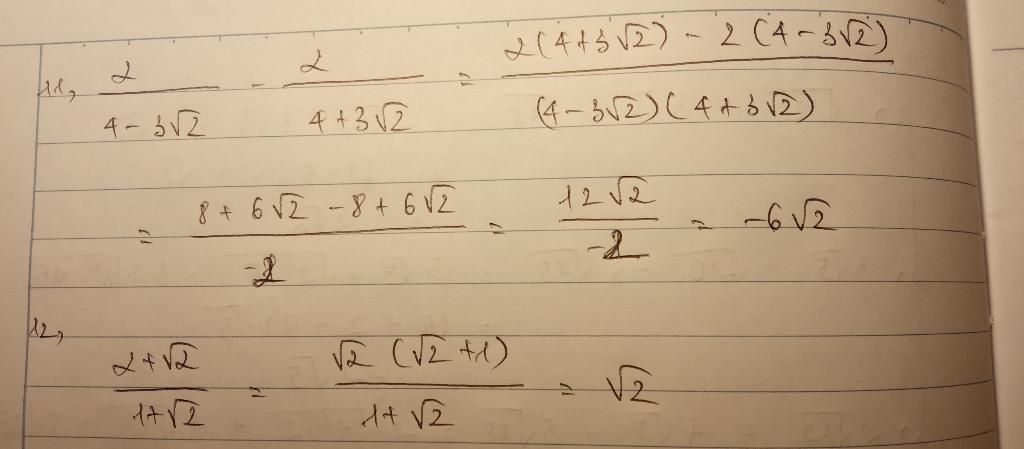 11, 2/(4 - 3√2) - 2/(4 + 3√2) = (2(4 + 3√2) - 2(4 - 3√2))/((4 - 3√2)(4 + 3√2))
= (8 + 6√2 - 8 + 6√2)/(-2) = (12√2)/(-2) = -6√2
12,
(2 + √2)/(1 + √2) = (√2(√2 + 1))/(1 + √2) = √2